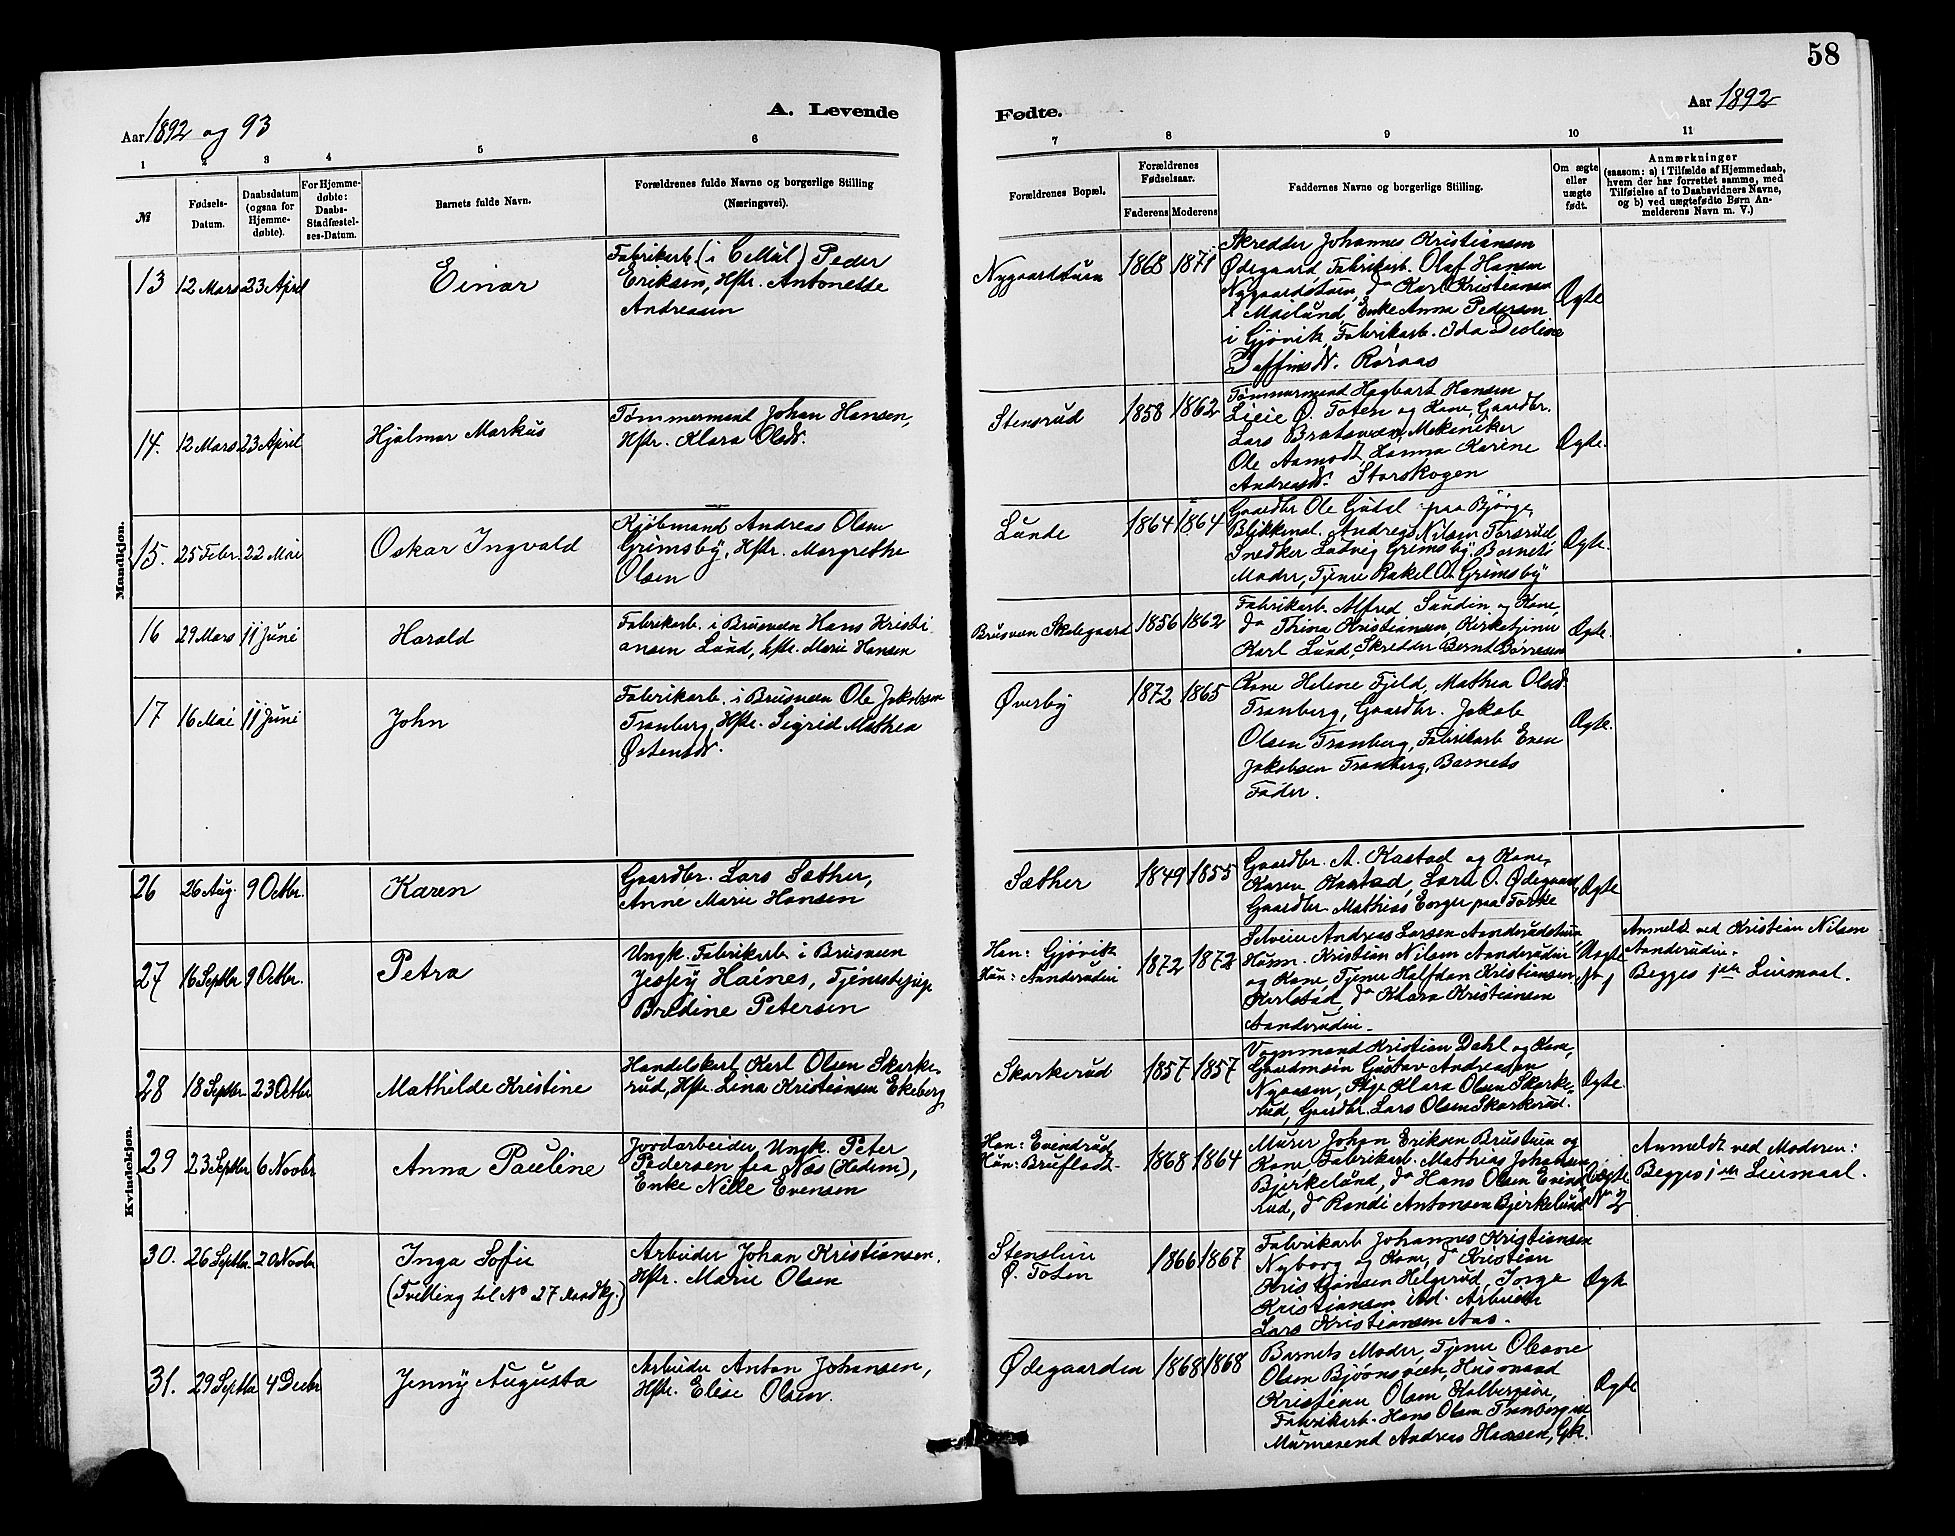 58
Aar 1892 og 93
A. Levende
Fødte.
Aar 1892
1 2 3 4 5 6 7 8 9 10 11
№
Fødsels-
Datum.
Daabsdatum
(ogsaa for
Hjemme-
døbte).
For Hjemme-
døbte:
Daabs-
Stadfæstel-
ses-Datum.
Barnets fulde Navn.
Forældrenes fulde Navne og borgerlige Stilling
(Næringsvei).
Forældrenes Bopæl.
Forældrenes
Fødselsaar.
Faderens Moderens
Faddernes Navne og borgerlige Stilling.
Om ægte
eller
uægte
født.
Anmærkninger
(saasom: a) i Tilfælde af Hjemmedaab,
hvem der har forrettet samme, med
Tilføielse af to Daabsvidners Navne,
og b) ved uægtefødte Børn An-
melderens Navn m. V.)
Mandkjøn.
13 12 Mars 23 April
Einar
Fabrikarb. (i Cellul) Peder
Eriksen, Hstr. Antonette
Andreasen
Nygaardstuen 1868 1871
Skredder Johannes Kristiansen
Ødegaard, Fabrikarb. Olaf Hansen
Nygaardstuen, do Karl Kristiansen
Mailund, Enke Anna Pedersen
i Gjøvik, Fabrikarb. Ida Deoline
Staffinsdr. Røraas
Ægte
14. 12 Mars 23 April
Hjalmar Markus
Tømmermand Johan Hansen,
Hstr. Klara Olsdr.
Stensrud 1858 1862
Tømmermand Hagbart Hansen
Ø. Toten og Kone, Gaardbr.
Lars Bratsveen, Mekeniker
Ole Aamodt, Hanna Karine
Andreasdr. Storskogen
Ægte.
15. 25 Febr. 22 Mai
Oskar Ingvald
Kjøbmand Andreas Olsen
Grimsby, Hstr. Margrethe
Olsen
Lunde 1864 1864
Gaardbr Ole Gudel paa Bjørge,
Blikkensl. Andreas Nilsen Forsrud
Snedker Ludvig Grimsby, Barnets
Moder, Tjener Rakel O. Grimsby
Ægte.
16 29 Mars 11 Juni
Harald
Fabrikarb. i Brusveen Hans Kristi-
ansen Lund, Hstr. Marie Hansen
Brusveen Skolegaard 1856 1862
Fabrikarb. Alfred Sundin og Kone,
do Thina Kristiansen, Kirketjener
Karl Lund, Skredder Bernt Børresen
Ægte.
17 16 Mai 11 Juni
John
Fabrikarb. i Brusveen Ole Jakobsen
Tranberg, Hstr. Sigrid Mathea
Østensdr.
Øverby 1872 1865
Kone Helene Fjeld, Mathea Olsdr.
Tranberg, Gaardbr. Jakob
Olsen Tranberg, Fabrikarb Even
Jakobsen Tranberg, Barnets
Fader.
Ægte.
Kvindekjøn.
26 26 Aug. 9 Octbr.
Karen
Gaardbr. Lars Sæther,
Anne Marie Hansen
Sæther 1849 1855
Gaardbr. A. Kastad og Kone,
Karen Kastad, Lara O. Ødegaard,
Gaardbr. Mathias Enger paa Forke
Ægte
27 16 Septbr 9 Octbr.
Petra
Ungk. Fabrikarb. i Brusveen
Haines, Tjenestepige
Bredine Petersen
Han: Gjøvik
Hun: Aanderudei 1872 1872
Selveier Andreas Larsen Aanderudstuen
Husm. Kristian Nilsen Aanderudei
og Kone, Tjener Halfdan Kristiansen
Karlstad, do Klara Kristiansen
Aanderudei.
Uægte
Anmeldt ved Kristian Nilsen
Aanderudei.
Begges 1ste Leiermaal.
28 18 Septbr 23 Octbr
Mathilde Kristine
Handelskarl Karl Olsen Skarke-
rud, Hstr. Lina Kristiansen Ekeberg
Skarkerud 1857 1857
Vognmand Kristian Dahl og Kone,
Gaardmand Gustav Andreasen
Nyaasen, Pige Klara Olsen Skarke-
rud, Gaardbr. Lars Olsen Skarkerud.
Ægte.
29 23 Septbr 6 Novbr
Anna Pauline
Jordarbeider, Ungk. Peter
Pedersen fra Næs (Hedem),
Enke Nille Evensen
Han: Evindrud
Hun: Bruflodt 1868 1864
Murer Johan Eriksen Brustuen og
Kone, Fabrikarb. Mathias Johansen
Bjerkelund, do Hans Olsen Evind-
rud, do Randi Antonsen Bjerkelund
Uægte
No 2
Anmeldt ved Moderen:
Begges 1ste Leiermaal.
30. 26 Septbr 20 Novbr
Inga Sofie
(Tvilling til No 27 Mandkj.)
Arbeider Johan Kristiansen,
Hstr. Marie Olsen
Ø. Toten 1866 1867
Fabrikarb. Johannes Kristiansen
Nyborg og Kone, do Kristian
Kristiansen Helgerud, Jorge
Kristiansen ibd. Arbeider
Lars Kristiansen Aas.
Ægte
31. 29 Septbr 4 Decbr
Jenny Augusta
Arbeider Anton Johansen,
Hstr. Elise Olsen.
Ødegaarden 1868 1868
Barnets Moder, Tjener Oleane
Olsen Bjørnsveen, Husmand
Kristian Olsen
Fabrikarb. Hans Olsen Tranberg og
Murmesend Andreas Hansen, Gk.
Ægte